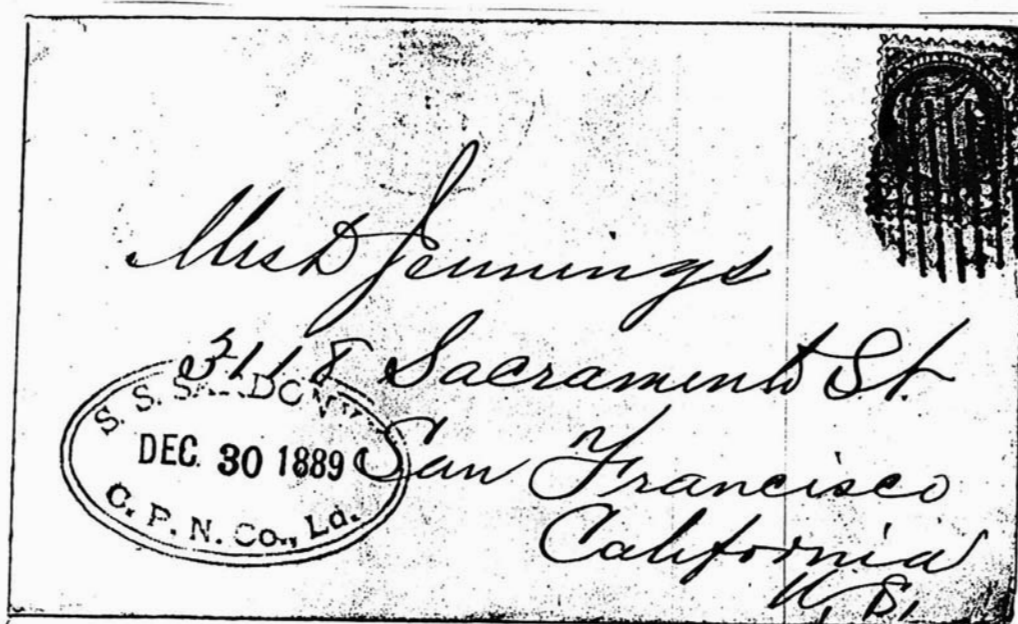 Mrs D Jennings
3118 Sacramento St.
San Francisco
California
U. S.
S. S. SARDONYX
DEC. 30 1889
C. P. N. Co., Ld.